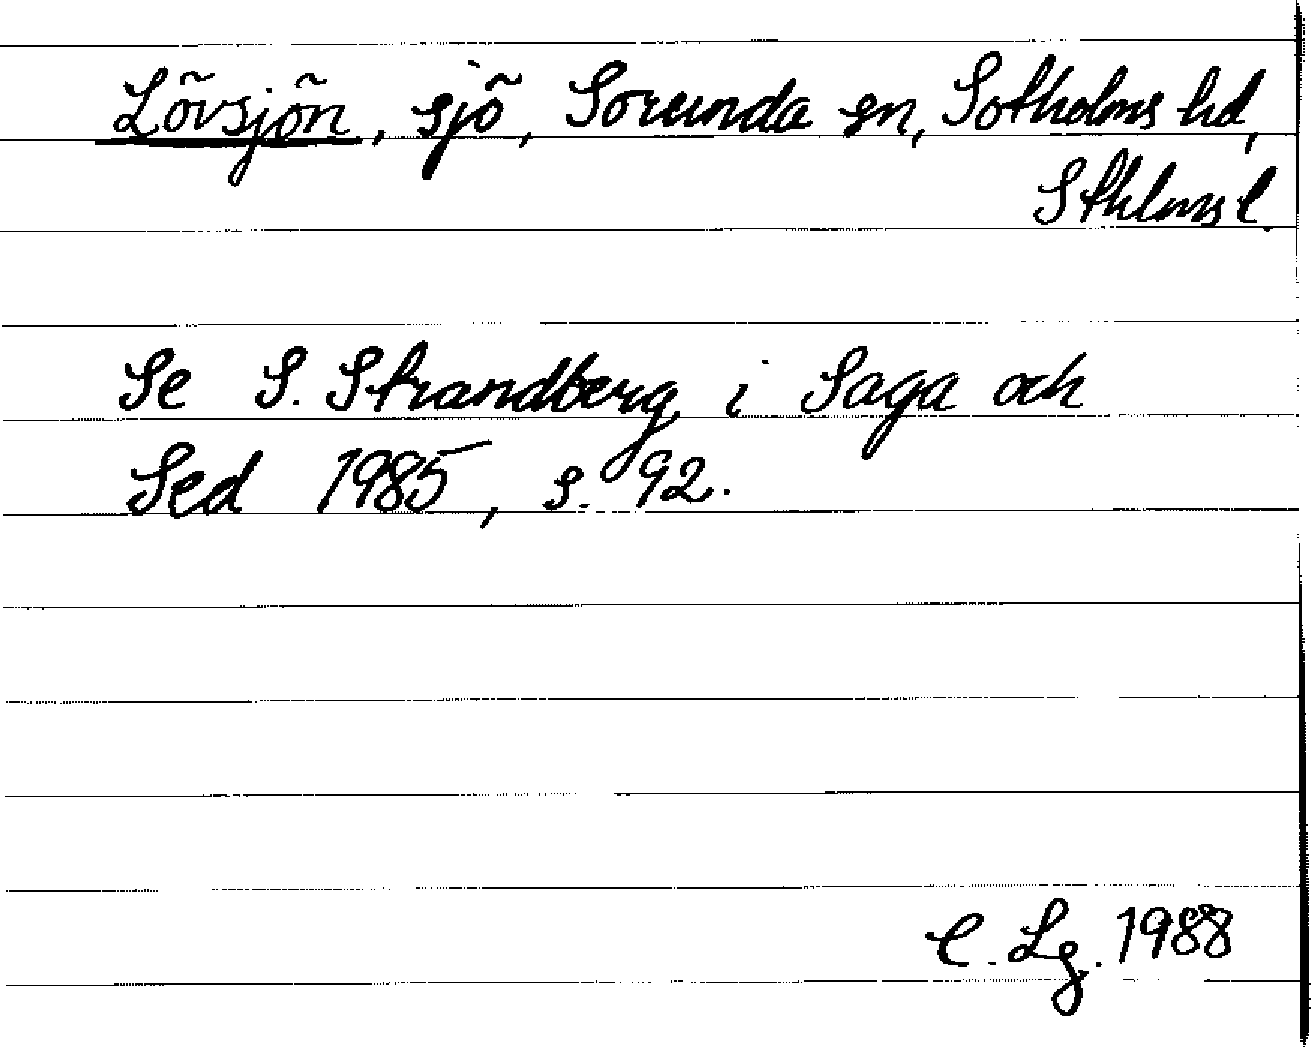 Lövsjön, sjö, Sorunda sn, Sotholms hd,
Sthlms l.
Se S. Strandberg i Saga och
Sed 1985, s. 92.
C. Lg. 1988